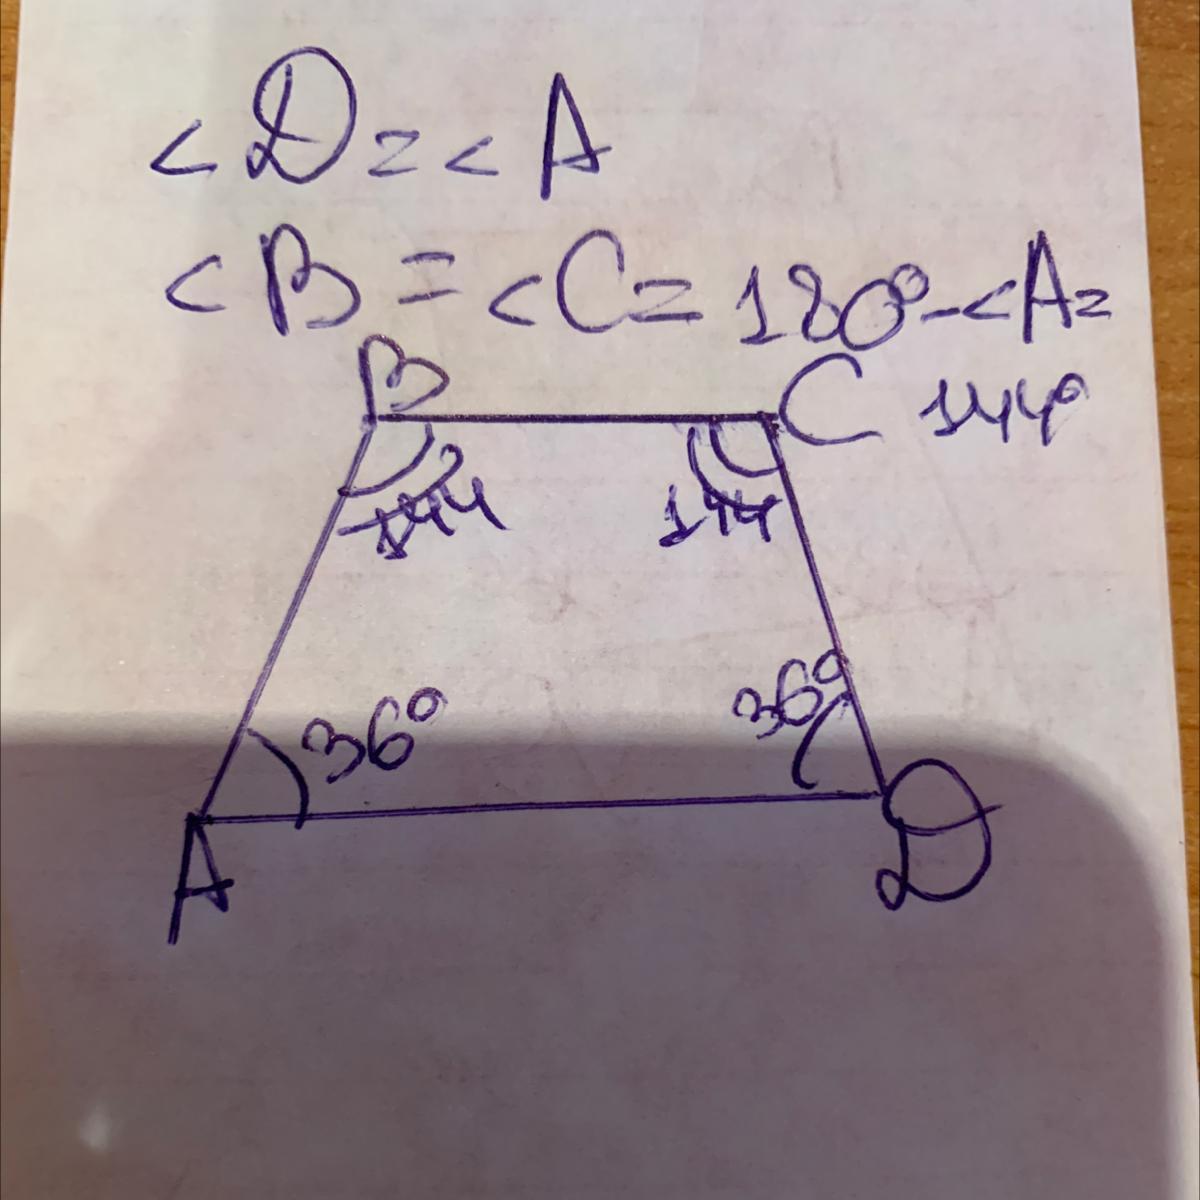 <D=<A
<B=<C=180°-<A=
B
C 144°
144
144
36°
36°
A
D